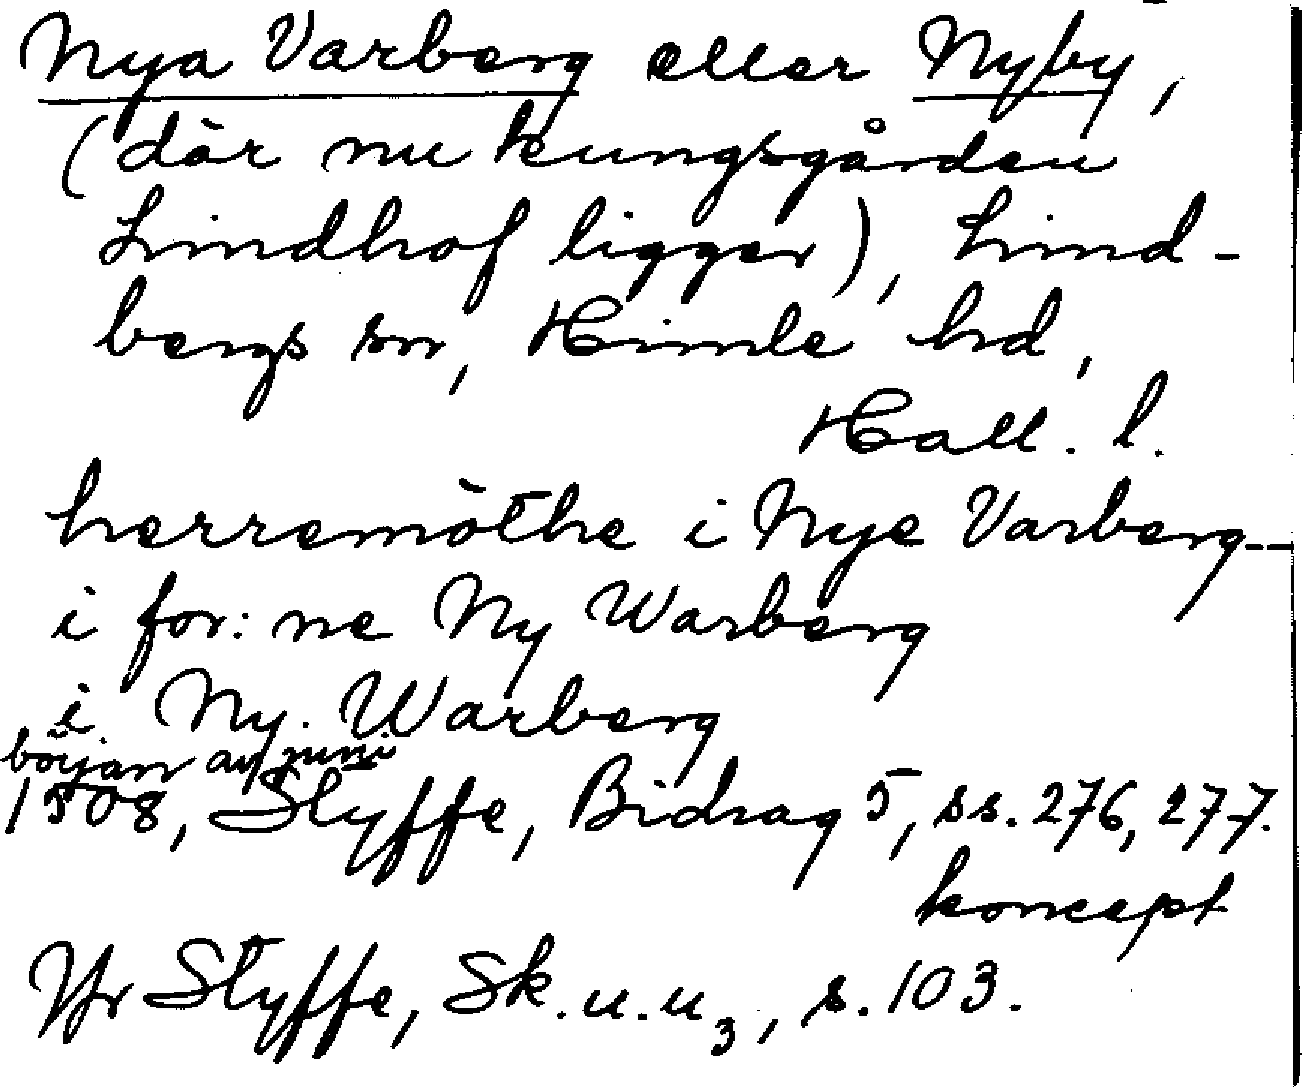 Nya Varberg eller Nyby,
(där nu kungsgården
Lindhof ligger), Lind-
bergs sn, Himle hd,
Hall. l.
herremöthe i Nye Varberg--
i for: ne Ny Warberg
i Ny. Warberg
början av juni
1508, Styffe, Bidrag 5, ss. 276, 277.
koncept
Jfr Styffe, Sk.u.u3, s. 103.